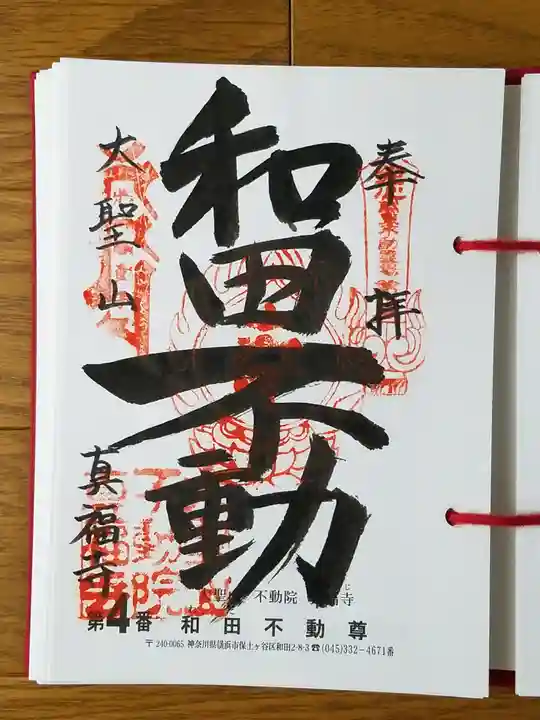 奉拝
和田不動
大聖山
真福寺
不動院
第4番 和田不動尊
〒240-0065 神奈川県横浜市保土ヶ谷区和田2-8-3☎(045)332-4671番